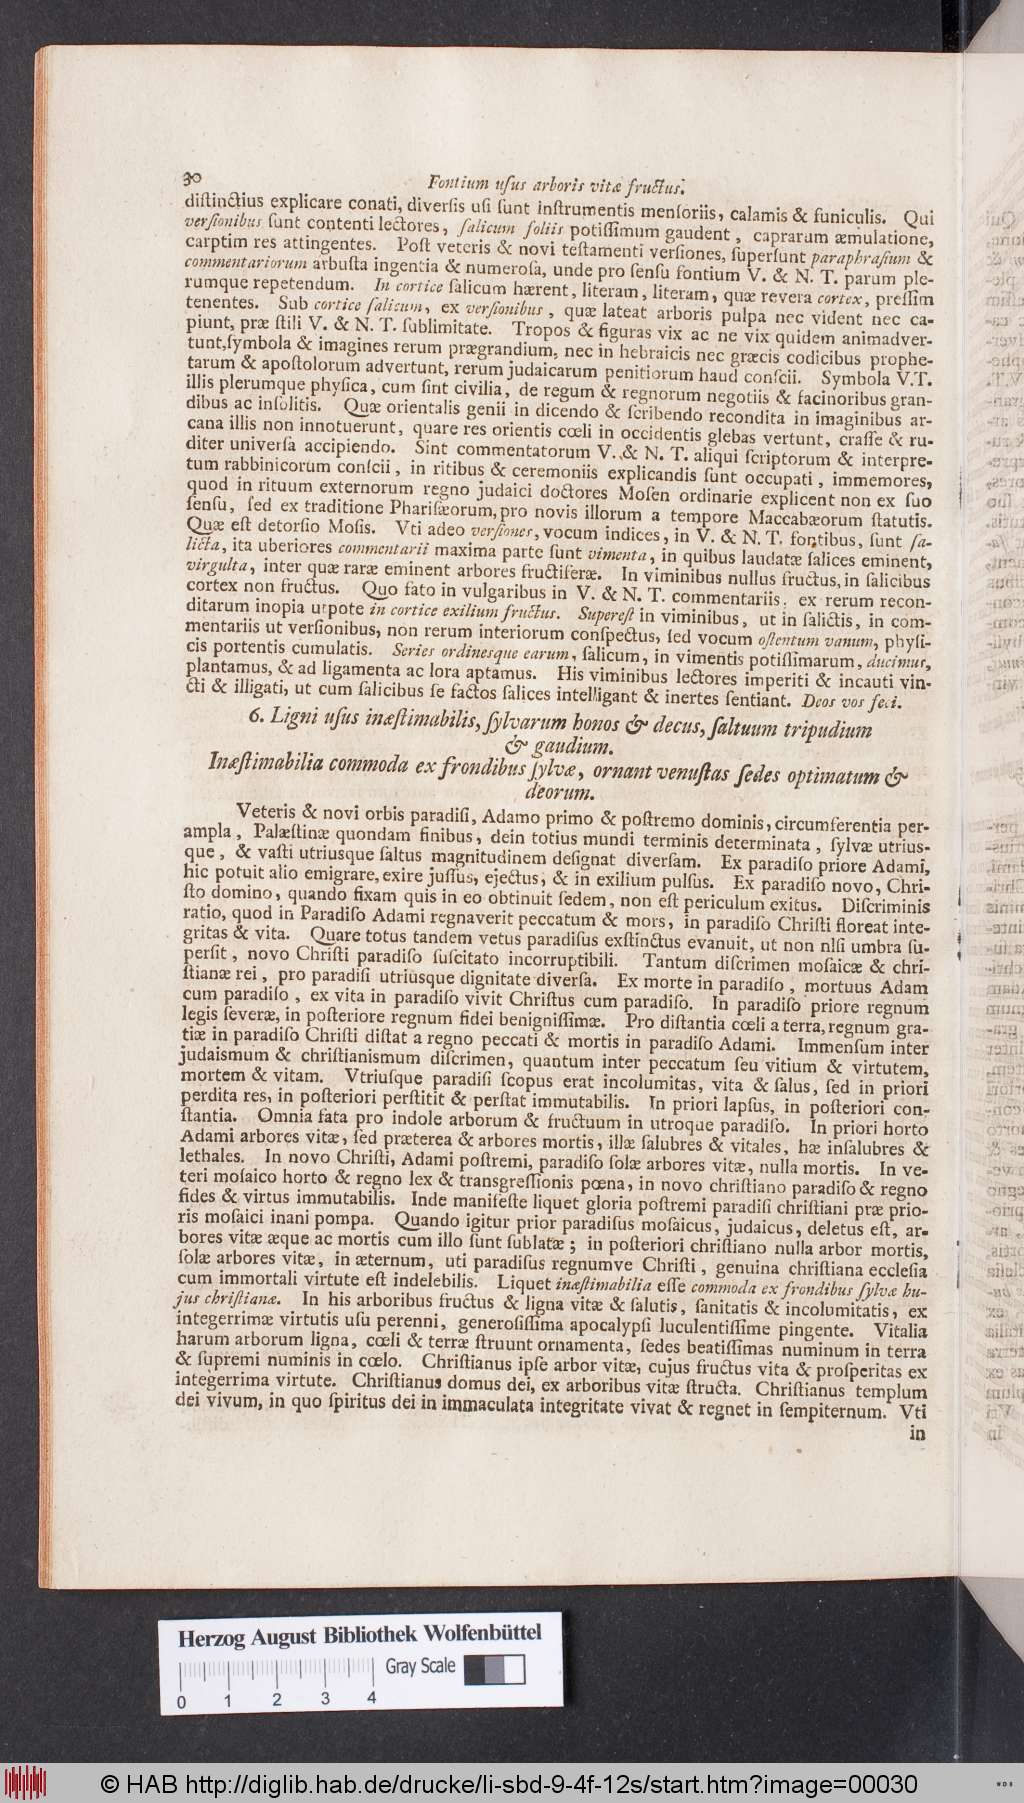 30
Fontium uſus arboris vitæ fructus.
diſtinctius explicare conati, diverſis uſi ſunt inſtrumentis menſoriis, calamis & funiculis. Qui
verſionibus ſunt contenti lectores, ſalicum foliis potiſſimum gaudent, caprarum æmulatione,
carptim res attingentes. Poſt veteris & novi teſtamenti verſiones, ſuperſunt paraphraſium &
commentariorum arbuſta ingentia & numeroſa, unde pro ſenſu fontium V. & N. T. parum ple-
rumque repetendum. In cortice ſalicum hærent, literam, literam, quæ revera cortex, preſſim
tenentes. Sub cortice ſalicum, ex verſionibus, quæ lateat arboris pulpa nec vident nec ca-
piunt, præ ſtili V. & N. T. ſublimitate. Tropos & figuras vix ac ne vix quidem animadver-
tunt,ſymbola & imagines rerum prægrandium, nec in hebraicis nec græcis codicibus prophe-
tarum & apoſtolorum advertunt, rerum judaicarum penitiorum haud conſcii. Symbola V.T.
illis plerumque phyſica, cum ſint civilia, de regum & regnorum negotiis & facinoribus gran-
dibus ac inſolitis. Quæ orientalis genii in dicendo & ſcribendo recondita in imaginibus ar-
cana illis non innotuerunt, quare res orientis cœli in occidentis glebas vertunt, craſſe & ru-
diter univerſa accipiendo. Sint commentatorum V. & N. T. aliqui ſcriptorum & interpre-
tum rabbinicorum conſcii, in ritibus & ceremoniis explicandis ſunt occupati, immemores,
quod in rituum externorum regno judaici doctores Moſen ordinarie explicent non ex ſuo
ſenſu, ſed ex traditione Phariſæorum, pro novis illorum a tempore Maccabæorum ſtatutis.
Quæ eſt detorſio Moſis. Vti adeo verſiones, vocum indices, in V. & N. T. fontibus, ſunt ſa-
licta, ita uberiores commentarii maxima parte ſunt vimenta, in quibus laudatæ ſalices eminent,
virgulta, inter quæ raræ eminent arbores fructiferæ. In viminibus nullus fructus, in ſalicibus
cortex non fructus. Quo fato in vulgaribus in V. & N. T. commentariis, ex rerum recon-
ditarum inopia utpote in cortice exilium fructus. Supereſt in viminibus, ut in ſalictis, in com-
mentariis ut verſionibus, non rerum interiorum conſpectus, ſed vocum oſtentum vanum, phyſi-
cis portentis cumulatis. Series ordinesque earum, ſalicum, in vimentis potiſſimarum, ducimus,
plantamus, & ad ligamenta ac lora aptamus. His viminibus lectores imperiti & incauti vin-
cti & illigati, ut cum ſalicibus ſe factos ſalices intelligant & inertes ſentiant. Deos vos feci.
6. Ligni uſus inæſtimabilis, ſylvarum honos & decus, ſaltuum tripudium
& gaudium.
Inæſtimabilia commoda ex frondibus ſylvæ, ornant venuſtas ſedes optimatum &
deorum.
Veteris & novi orbis paradiſi, Adamo primo & poſtremo dominis, circumferentia per-
ampla, Palæſtinæ quondam finibus, dein totius mundi terminis determinata, ſylvæ utrius-
que, & vaſti utriusque ſaltus magnitudinem deſignat diverſam. Ex paradiſo priore Adami,
hic potuit alio emigrare, exire juſſus, ejectus, & in exilium pulſus. Ex paradiſo novo, Chri-
ſto domino, quando fixam quis in eo obtinuit ſedem, non eſt periculum exitus. Diſcriminis
ratio, quod in Paradiſo Adami regnaverit peccatum & mors, in paradiſo Chriſti floreat inte-
gritas & vita. Quare totus tandem vetus paradiſus exſtinctus evanuit, ut non niſi umbra ſu-
perſit, novo Chriſti paradiſo ſuſcitato incorruptibili. Tantum diſcrimen moſaicæ & chri-
ſtianæ rei, pro paradiſi utriusque dignitate diverſa. Ex morte in paradiſo, mortuus Adam
cum paradiſo, ex vita in paradiſo vivit Chriſtus cum paradiſo. In paradiſo priore regnum
legis ſeveræ, in poſteriore regnum fidei benigniſſimæ. Pro diſtantia cœli a terra, regnum gra-
tiæ in paradiſo Chriſti diſtat a regno peccati & mortis in paradiſo Adami. Immenſum inter
judaismum & chriſtianismum diſcrimen, quantum inter peccatum ſeu vitium & virtutem,
mortem & vitam. Vtriuſque paradiſi ſcopus erat incolumitas, vita & ſalus, ſed in priori
perdita res, in poſteriori perſtitit & perſtat immutabilis. In priori lapſus, in poſteriori con-
ſtantia. Omnia fata pro indole arborum & fructuum in utroque paradiſo. In priori horto
Adami arbores vitæ, ſed præterea & arbores mortis, illæ ſalubres & vitales, hæ inſalubres &
lethales. In novo Chriſti, Adami poſtremi, paradiſo ſolæ arbores vitæ, nulla mortis. In ve-
teri moſaico horto & regno lex & transgreſſionis pœna, in novo chriſtiano paradiſo & regno
fides & virtus immutabilis. Inde manifeſte liquet gloria poſtremi paradiſi chriſtiani præ prio-
ris moſaici inani pompa. Quando igitur prior paradiſus moſaicus, judaicus, deletus eſt, ar-
bores vitæ æque ac mortis cum illo ſunt ſublatæ; in poſteriori chriſtiano nulla arbor mortis,
ſolæ arbores vitæ, in æternum, uti paradiſus regnumve Chriſti, genuina chriſtiana eccleſia
cum immortali virtute eſt indelebilis. Liquet inæſtimabilia eſſe commoda ex frondibus ſylvæ hu-
jus chriſtianæ. In his arboribus fructus & ligna vitæ & ſalutis, ſanitatis & incolumitatis, ex
integerrimæ virtutis uſu perenni, generoſiſſima apocalypſi luculentiſſime pingente. Vitalia
harum arborum ligna, cœli & terræ ſtruunt ornamenta, ſedes beatiſſimas numinum in terra
& ſupremi numinis in cœlo. Chriſtianus ipſe arbor vitæ, cujus fructus vita & proſperitas ex
integerrima virtute. Chriſtianus domus dei, ex arboribus vitæ ſtructa. Chriſtianus templum
dei vivum, in quo ſpiritus dei in immaculata integritate vivat & regnet in ſempiternum. Vti
in
Herzog August Bibliothek Wolfenbüttel
Gray Scale
0 1 2 3 4
© HAB http://diglib.hab.de/drucke/li-sbd-9-4f-12s/start.htm?image=00030